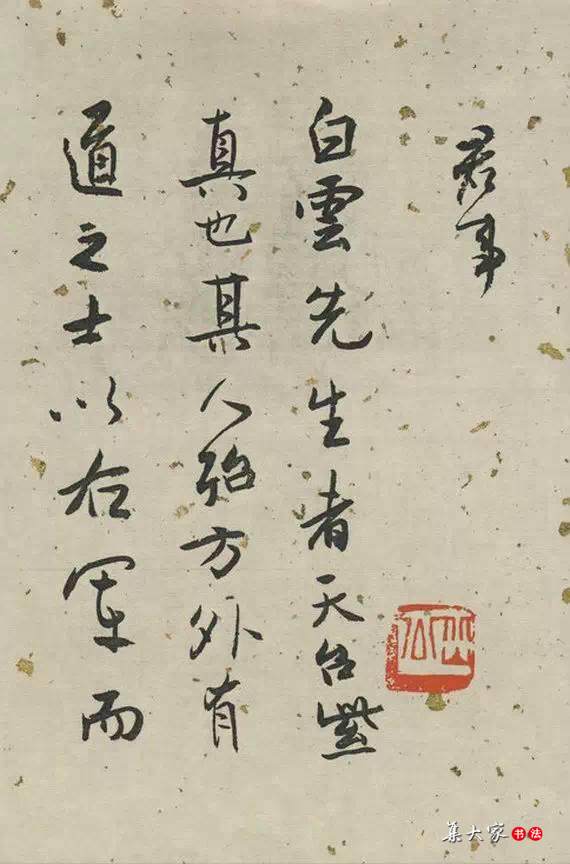 事
白雲先生者天台紫
真也其人殆方外有
道之士以右軍而
集大家 书法